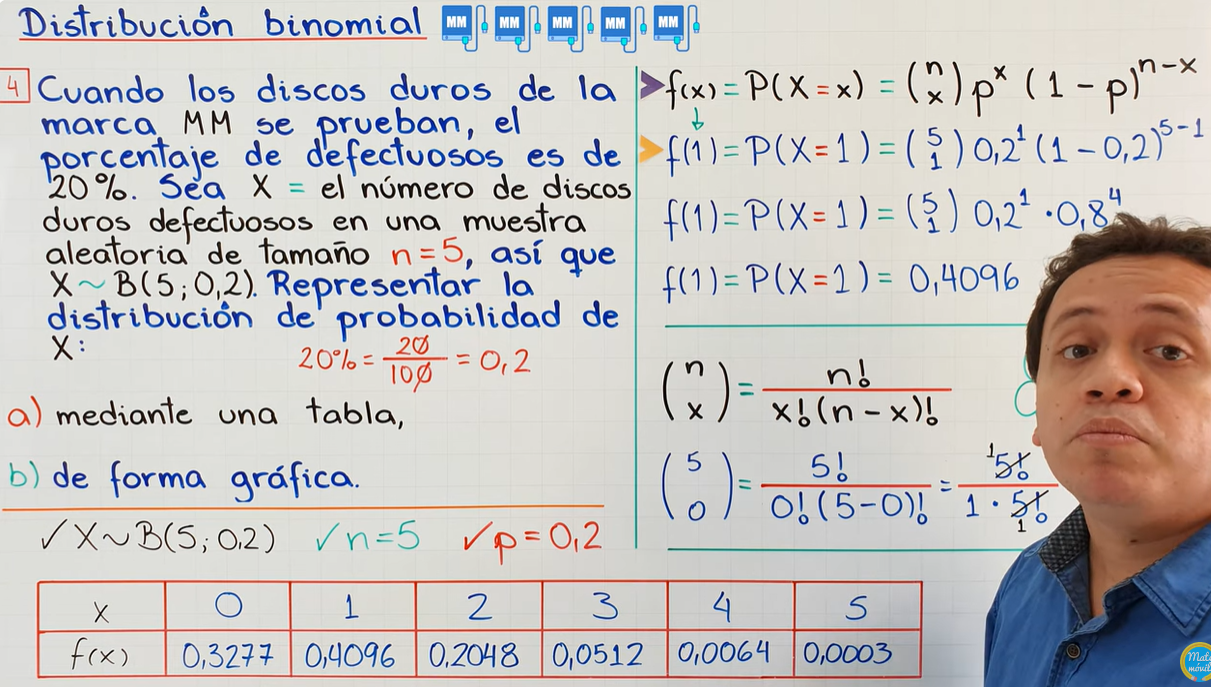 Distribución binomial MM MM MM MM MM
4 Cuando los discos duros de la
marca MM se prueban, el
porcentaje de defectuosos es de
20%. Sea X = el número de discos
duros defectuosos en una muestra
aleatoria de tamaño n=5, así que
X~B(5;0,2). Representar la
distribución de probabilidad de
X:
20% = 20/100 = 0,2
a) mediante una tabla,
b) de forma gráfica.
✓X~B(5;0,2) ✓n=5 ✓p=0,2
f(x) = P(X=x) = (n x) p^x (1-p)^n-x
f(1) = P(X=1) = (5 1) 0,2^1 (1-0,2)^5-1
f(1) = P(X=1) = (5 1) 0,2^1 · 0,8^4
f(1) = P(X=1) = 0,4096
(n x) = n! / x!(n-x)!
(5 0) = 5! / 0!(5-0)! = 1 5! / 1 · 5! 1
x 0 1 2 3 4 5
f(x) 0,3277 0,4096 0,2048 0,0512 0,0064 0,0003
Mate
móvil